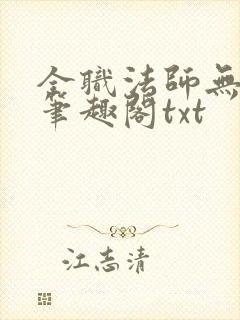 全職法師無
筆趣閣txt
江志清